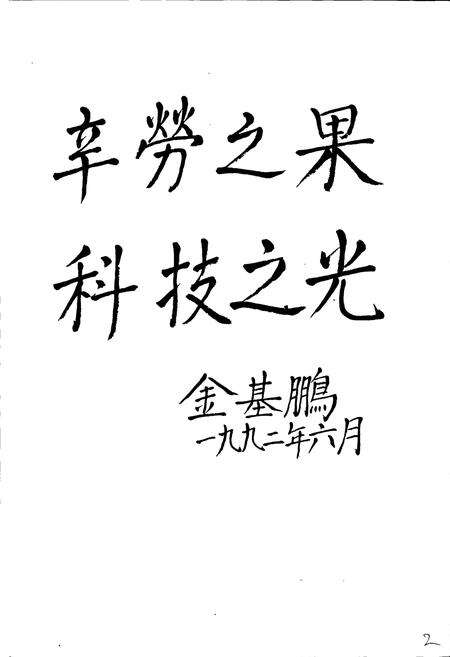 辛勞之果
科技之光
金基鵬
一九九二年六月
2